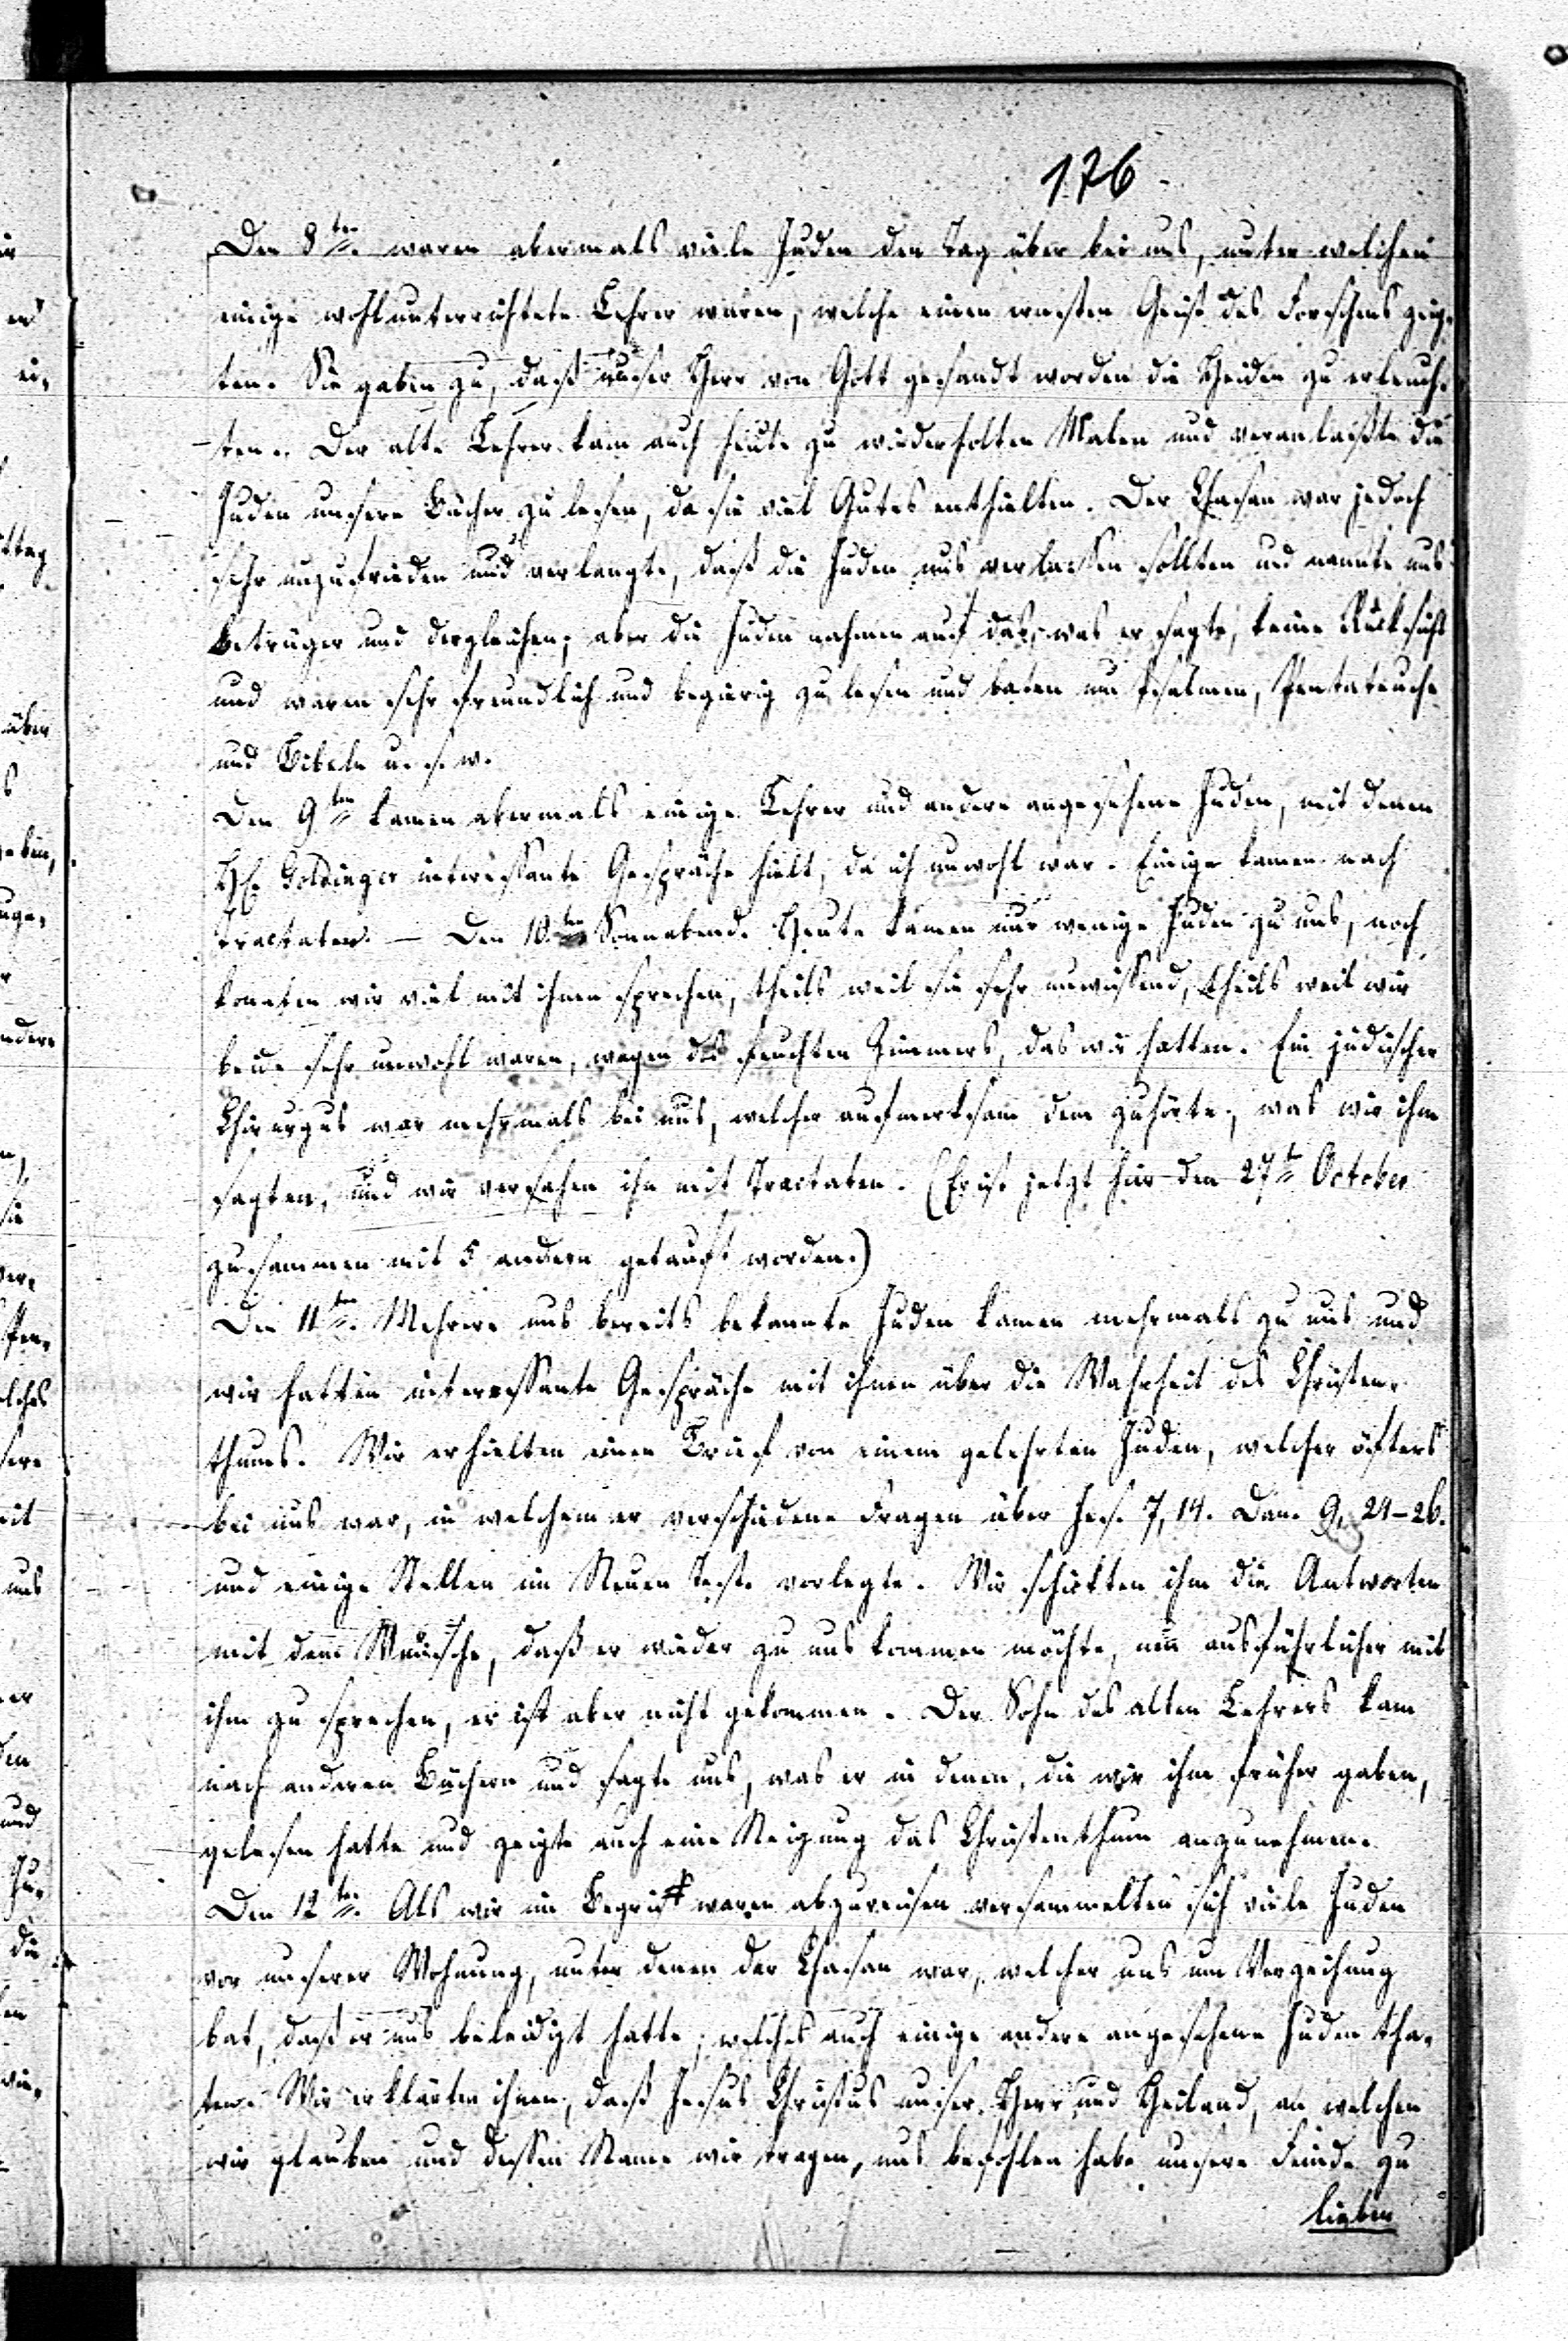 176
Den 8ten. waren abermals viele Juden den Tag über bei uns, unter welchen
einige wohlunterrichtete Lehrer waren, welche einen ernsten Geist des Forschens zeig-
ten. Sie gaben zu, daß unser Herr von Gott gesandt worden die Heiden zu erleuch-
ten. Der alte Lehrer kam auch heute zu wiederholten Malen und veranlaßte die
Juden unsere Bücher zu lesen, da sie viel Gutes enthielten. Der Chasan war jedoch
sehr unzufrieden und verlangte, daß die Juden uns verlassen sollten und nannte uns
Betrüger und dergleichen; aber die Juden nahmen auf das, was er sagte, keine Rücksicht
und waren sehr freundlich und begierig zu lesen und baten um Psalmen, Pentateuche
und Bibeln u. s. w.
Den 9ten kamen abermals einige Lehrer und andere angesehene Juden, mit denen
H. Goldinger interessante Gespräche hielt, da ich unwohl war. Einige kamen nach
Tractaten. — Den 10.ten Sonnabend. Heute kamen nur wenige Juden zu uns, noch
konnten wir viel mit ihnen sprechen, theils weil sie sehr unwissend, theils weil wir
beide sehr unwohl waren, wegen des feuchten Zimmers, das wir hatten. Ein jüdischer
Chirurgus war mehrmals bei uns, welcher aufmerksam dem zuhörte, was wir ihm
sagten, und wir versahen ihn mit Tractaten. (Er ist jetzt hier den 27t October
zusammen mit 5 andern getauft worden.)
Den 11ten. Mehrere uns bereits bekannte Juden kamen mehrmals zu uns und
wir hatten interessante Gespräche mit ihnen über die Wahrheit des Christen-
thums. Wir erhielten einen Brief von einem gelehrten Juden, welcher öfters
bei uns war, in welchem er verschiedene Fragen über Jes. 7, 14. Dan. 9, 24–26.
und einige Stellen im Neuen Test. vorlegte. Wir schickten ihm die Antworten
mit dem Wunsche, daß er wieder zu uns kommen möchte, um ausführlicher mit
ihm zu sprechen, er ist aber nicht gekommen. Der Sohn des alten Lehrers kam
nach anderen Büchern und sagte uns, was er in denen, die wir ihm früher gaben,
gelesen hatte und zeigte auch eine Neigung das Christenthum anzunehmen.
Den 12ten. Als wir im Begriff waren abzureisen versammelten sich viele Juden
vor unserer Wohnung, unter denen der Chasan war, welcher uns um Verzeihung
bat, daß er uns beleidigt hatte; welches auch einige andere angesehene Juden tha-
ten. Wir erklärten ihnen, daß Jesus Christus unser Herr und Heiland, an welchen
wir glauben und dessen Name wir tragen, uns befohlen habe unsere Feinde zu
lieben